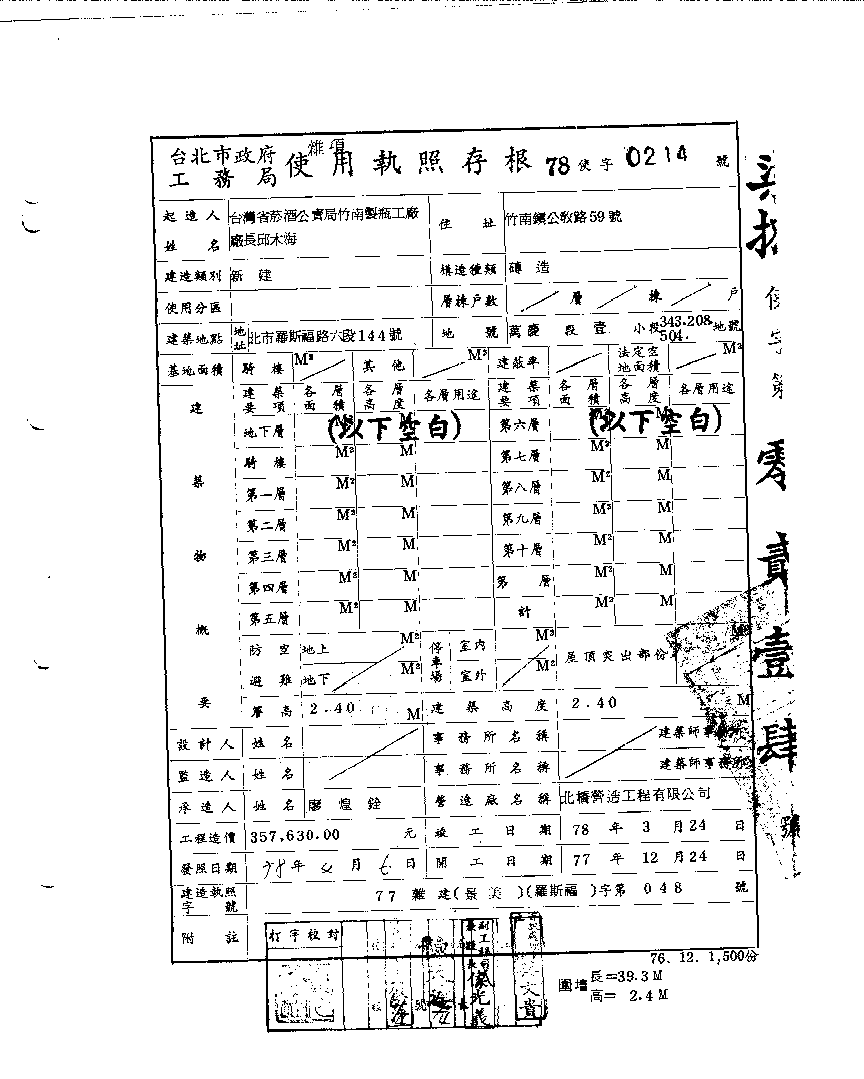 台北市政府
工務局
雜項
使用執照存根 78 使字 0214 號
起造人姓名 台灣省菸酒公賣局竹南製瓶工廠
廠長邱木海
住址 竹南鎮公教路59號
建造類別 新建 構造種類 磚造
使用分區 層棟戶數 ／層／棟／戶
建築地點 地址 北市羅斯福路六段144號 地號 萬慶段壹小段343.208.504.地號
基地面積 騎樓 M² 其他 M² 建蔽率 法定空地面積 M²
建築物概要
建築要項 各層面積 各層高度 各層用途 建築要項 各層面積 各層高度 各層用途
地下層 (以下空白) 第六層 (以下空白)
騎樓 M² M 第七層 M² M
第一層 M² M 第八層 M² M
第二層 M² M 第九層 M² M
第三層 M² M 第十層 M² M
第四層 M² M 第 層 M² M
第五層 M² M 計 M² M
防空避難 地上 M² 停車場 室內 M² 屋頂突出部份 M²
地下 M² 室外 M²
簷高 2.40 M 建築高度 2.40 M
設計人 姓名 事務所名稱 建築師事務所
監造人 姓名 事務所名稱 建築師事務所
承造人 姓名 廖煌銓 營造廠名稱 北橋營造工程有限公司
工程造價 357,630.00 元 竣工日期 78年3月24日
發照日期 78年4月6日 開工日期 77年12月24日
建造執照字號 77雜建(景美)(羅斯福)字第048號
附註
打字校對
76. 12. 1,500份
圍墻 長=39.3M
高= 2.4M
使字第
零貳壹肆號